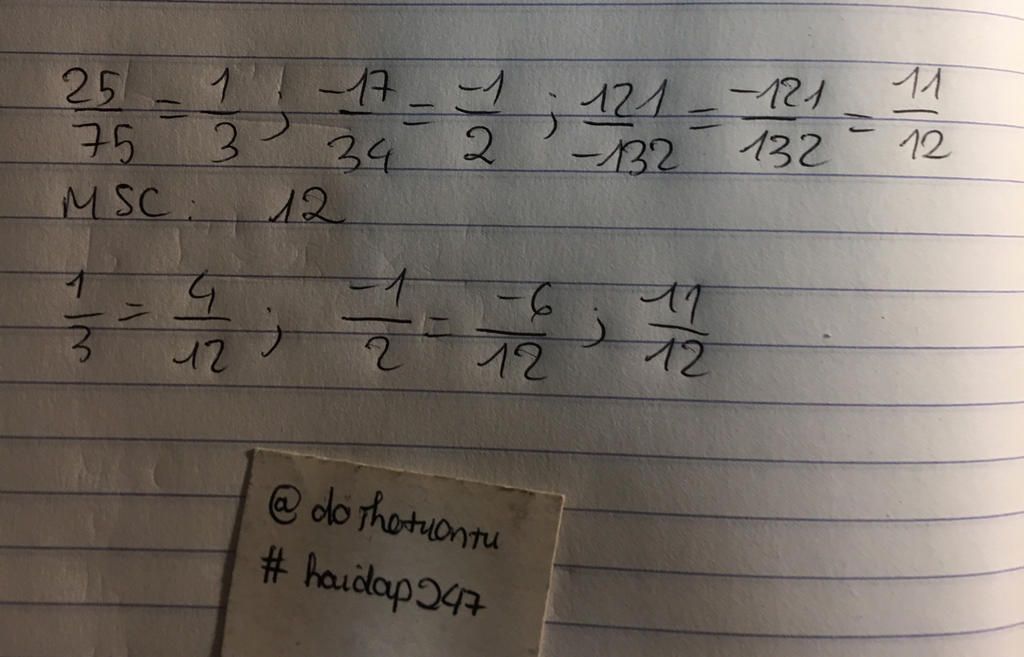 25/75 = 1/3 ; -17/34 = -1/2 ; 121/-132 = -121/132 = 11/12
MSC : 12
1/3 = 4/12 ; -1/2 = -6/12 ; 11/12
@dothetuontu
# hoidap247